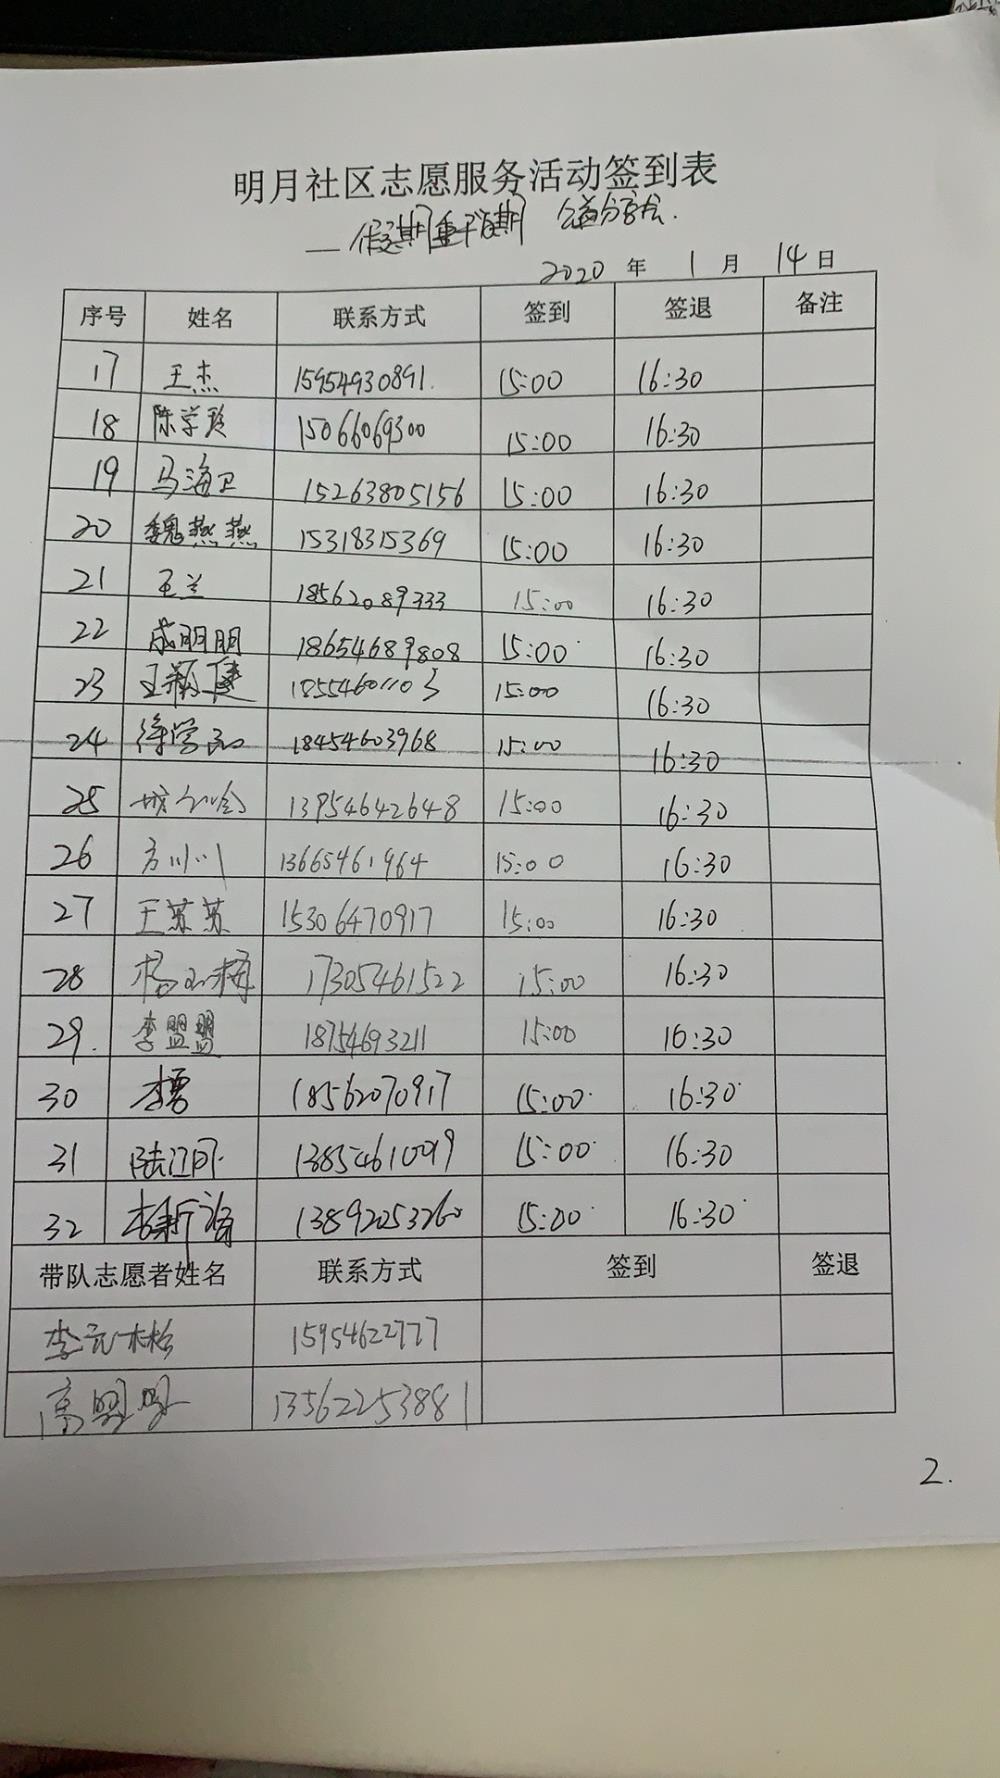 明月社区志愿服务活动签到表
—假期重 期 公益分享会.
2020 年 1 月 14 日
序号 姓名 联系方式 签到 签退 备注
17 王杰 15954930891. 15:00 16:30
18 陈学玲 15066069300 15:00 16:30
19 马海卫 15263805156 15:00 16:30
20 魏燕燕 15318315369 15:00 16:30
21 王兰 18562089333 15:00 16:30
22 成明明 18654689808 15:00 16:30
23 王颖健 18554601103 15:00 16:30
24 18454603968 15:00 16:30
25 13954642648 15:00 16:30
26 方川川 13665461964 15:00 16:30
27 王苏苏 15306470917 15:00 16:30
28 杨玉梅 17305461522 15:00 16:30
29. 李盟盟 18754693211 15:00 16:30
30 18562070917 15:00 16:30
31 15:00 16:30
32 13892053260 15:00 16:30
带队志愿者姓名 联系方式 签到 签退
李元松 15954622777
高盟盟 13562253881
2.